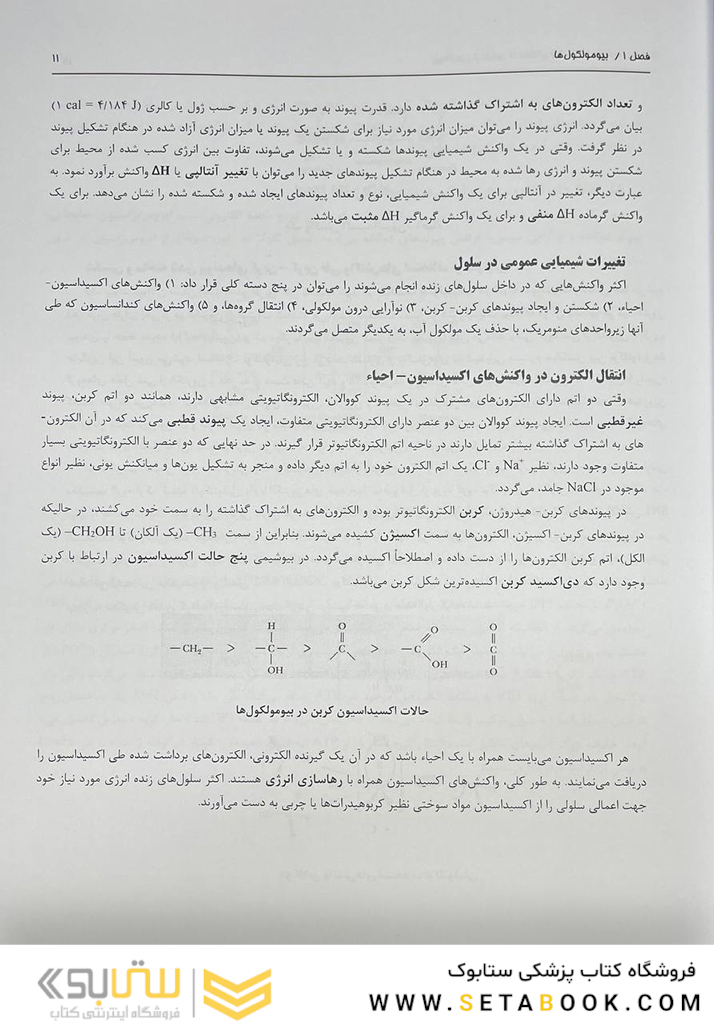 فصل ۱ / بیومولکول‌ها
۱۱
و تعداد الکترون‌های به اشتراک گذاشته شده دارد. قدرت پیوند به صورت انرژی و بر حسب ژول یا کالری (۱ cal = ۴/۱۸۴ J)
بیان می‌گردد. انرژی پیوند را می‌توان میزان انرژی مورد نیاز برای شکستن یک پیوند یا میزان انرژی آزاد شده در هنگام تشکیل پیوند
در نظر گرفت. وقتی در یک واکنش شیمیایی پیوندها شکسته و یا تشکیل می‌شوند، تفاوت بین انرژی کسب شده از محیط برای
شکستن پیوند و انرژی رها شده به محیط در هنگام تشکیل پیوندهای جدید را می‌توان با تغییر آنتالپی یا ΔH واکنش برآورد نمود. به
عبارت دیگر، تغییر در آنتالپی برای یک واکنش شیمیایی، نوع و تعداد پیوندهای ایجاد شده و شکسته شده را نشان می‌دهد. برای یک
واکنش گرماده ΔH منفی و برای یک واکنش گرماگیر ΔH مثبت می‌باشد.
تغییرات شیمیایی عمومی در سلول
اکثر واکنش‌هایی که در داخل سلول‌های زنده انجام می‌شوند را می‌توان در پنج دسته کلی قرار داد: ۱) واکنش‌های اکسیداسیون-
احیاء، ۲) شکستن و ایجاد پیوندهای کربن- کربن، ۳) نوآرایی درون مولکولی، ۴) انتقال گروه‌ها، و ۵) واکنش‌های کندانساسیون که طی
آنها زیرواحدهای منومریک، با حذف یک مولکول آب، به یکدیگر متصل می‌گردند.
انتقال الکترون در واکنش‌های اکسیداسیون- احیاء
وقتی دو اتم دارای الکترون‌های مشترک در یک پیوند کووالان، الکترونگاتیویتی مشابهی دارند، همانند دو اتم کربن، پیوند
غیرقطبی است. ایجاد پیوند کووالان بین دو عنصر دارای الکترونگاتیویتی متفاوت، ایجاد یک پیوند قطبی می‌کند که در آن الکترون-
های به اشتراک گذاشته بیشتر تمایل دارند در ناحیه اتم الکترونگاتیوتر قرار گیرند. در حد نهایی که دو عنصر با الکترونگاتیویتی بسیار
متفاوت وجود دارند، نظیر Na⁺ و Cl⁻، یک اتم الکترون خود را به اتم دیگر داده و منجر به تشکیل یون‌ها و میانکنش یونی، نظیر انواع
موجود در NaCl جامد، می‌گردد.
در پیوندهای کربن- هیدروژن، کربن الکترونگاتیوتر بوده و الکترون‌های به اشتراک گذاشته را به سمت خود می‌کشند، در حالیکه
در پیوندهای کربن- اکسیژن، الکترون‌ها به سمت اکسیژن کشیده می‌شوند. بنابراین از سمت CH₃– (یک آلکان) تا CH₂OH– (یک
الکل)، اتم کربن الکترون‌ها را از دست داده و اصطلاحاً اکسیده می‌گردد. در بیوشیمی پنج حالت اکسیداسیون در ارتباط با کربن
وجود دارد که دی‌اکسید کربن اکسیده‌ترین شکل کربن می‌باشد.
H O O O
—CH₂— > —C— > C > —C > C
OH OH O
حالات اکسیداسیون کربن در بیومولکول‌ها
هر اکسیداسیون می‌بایست همراه با یک احیاء باشد که در آن یک گیرنده الکترونی، الکترون‌های برداشت شده طی اکسیداسیون را
دریافت می‌نمایند. به طور کلی، واکنش‌های اکسیداسیون همراه با رهاسازی انرژی هستند. اکثر سلول‌های زنده انرژی مورد نیاز خود
جهت اعمالی سلولی را از اکسیداسیون مواد سوختی نظیر کربوهیدرات‌ها یا چربی به دست می‌آورند.
فروشگاه کتاب پزشکی ستابوک
WWW.SETABOOK.COM
ستابوک
فروشگاه اینترنتی کتاب